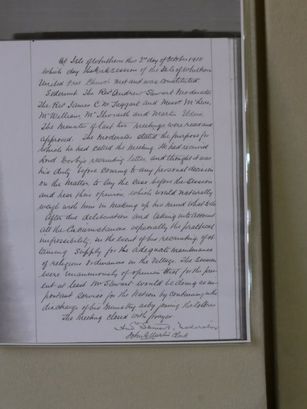 At Isle of Whithorn this 3rd day of October 1915
Which day the Kirk Session of the Isle of Whithorn
United Free Church met and was constituted
Sederunt The Rev Andrew Stewart Moderator
The Rev James C. McTaggart and Messrs
McWilliam, and Martin Elders.
The Minutes of last two meetings were read and
approved. The moderator stated the purpose for
which he had called the meeting. He had received
Lord Derby's recruiting letter, and thought it was
his duty before coming to any personal decision
on the matter to lay the case before the Session
and hear their opinion which would naturally
weigh with him in making up his mind what to do
After due deliberation and taking into account
all the circumstances especially the practical
impossibility in the event of his recruiting of ob
taining supply for the adequate maintenance
of religious ordinances in the village. The Session
were unanimously of opinion that for the pres
ent at least Mr Stewart would be doing as im
portant service for the Nation by continuing in the
discharge of his Ministry as by joining the Colours
The meeting closed with prayer
And Stewart, Moderator
John Martin Clerk